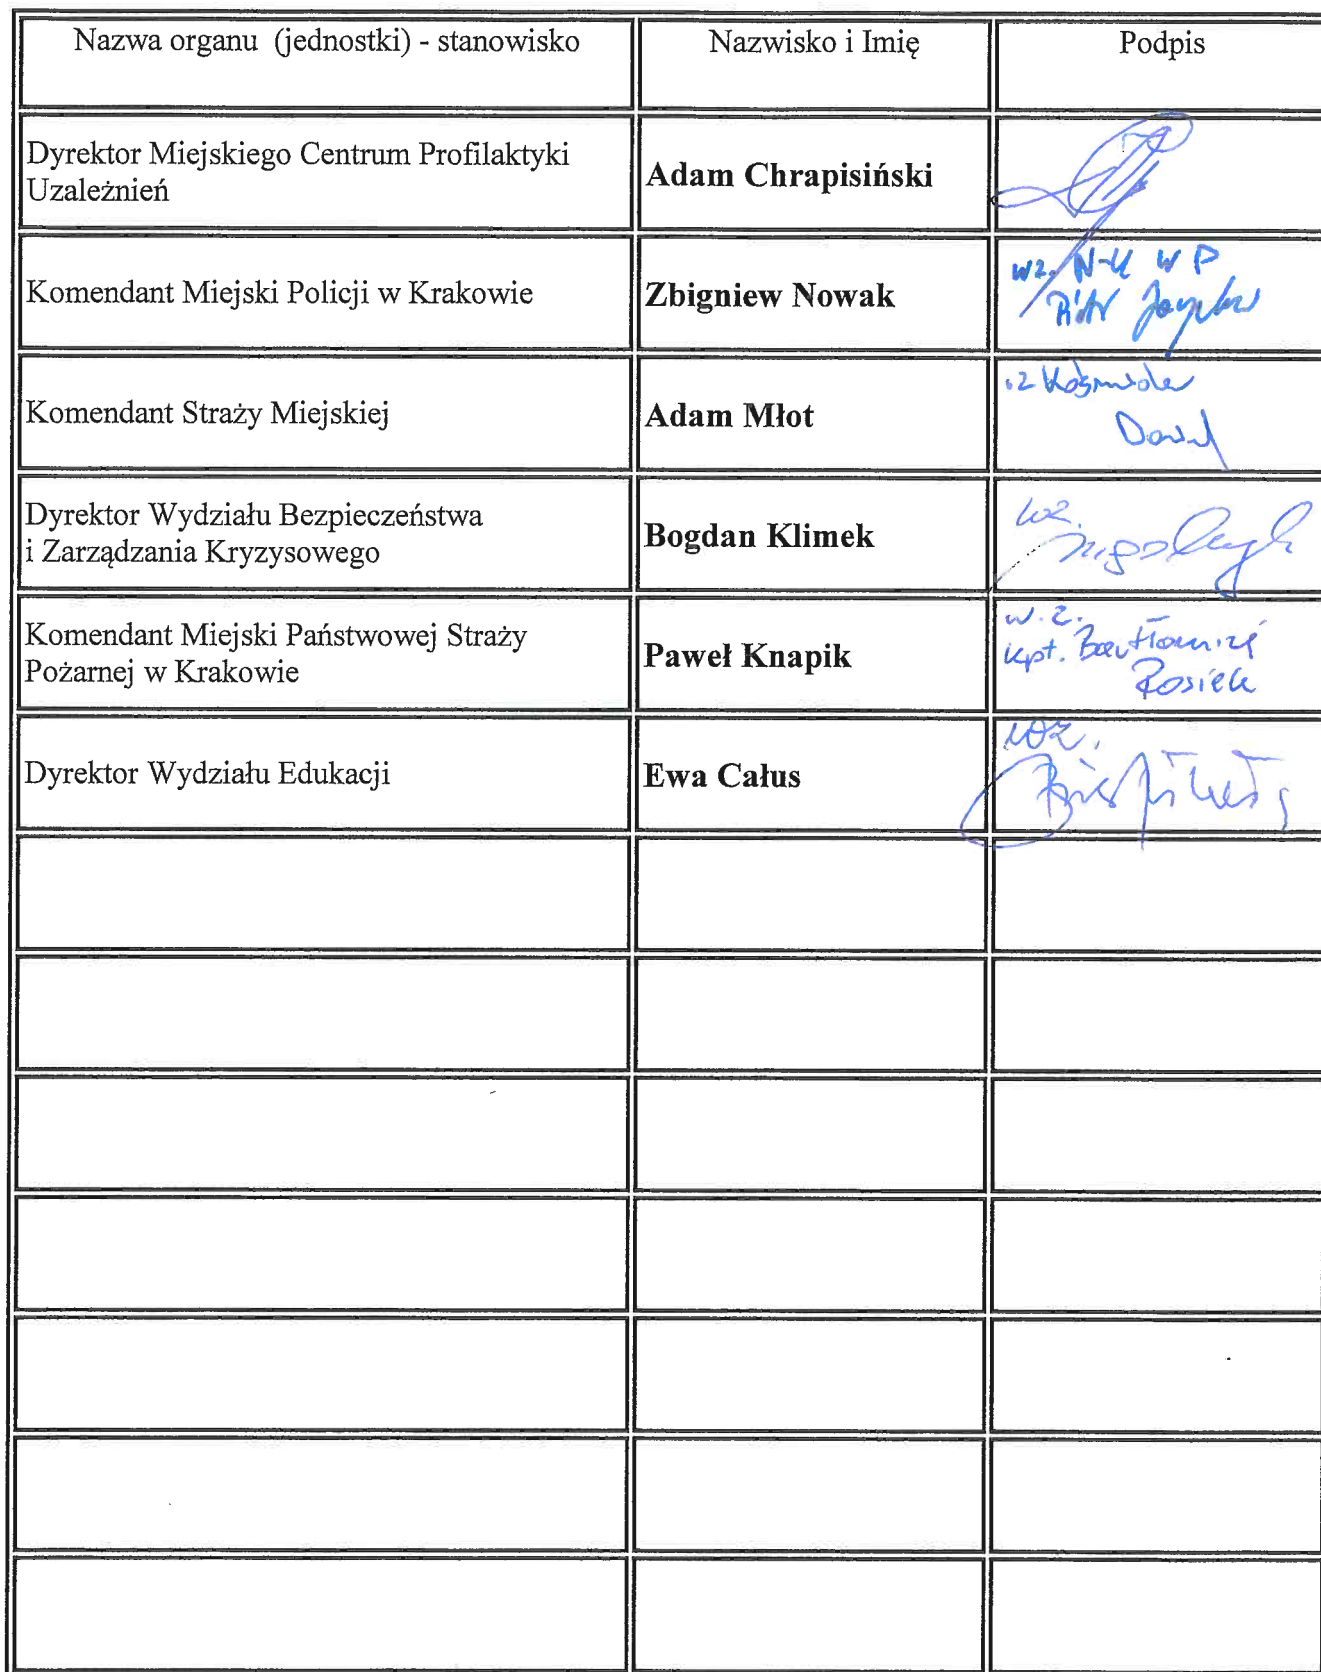 Nazwa organu (jednostki) - stanowisko
Nazwisko i Imię
Podpis
Dyrektor Miejskiego Centrum Profilaktyki
Uzależnień
Adam Chrapisiński
Komendant Miejski Policji w Krakowie
Zbigniew Nowak
wz. N-K WP
Piotr
Komendant Straży Miejskiej
Adam Młot
Dawid
Dyrektor Wydziału Bezpieczeństwa
i Zarządzania Kryzysowego
Bogdan Klimek
wz.
Komendant Miejski Państwowej Straży
Pożarnej w Krakowie
Paweł Knapik
w.z.
kpt. Bartłomiej
Rosiek
Dyrektor Wydziału Edukacji
Ewa Całus
wz.